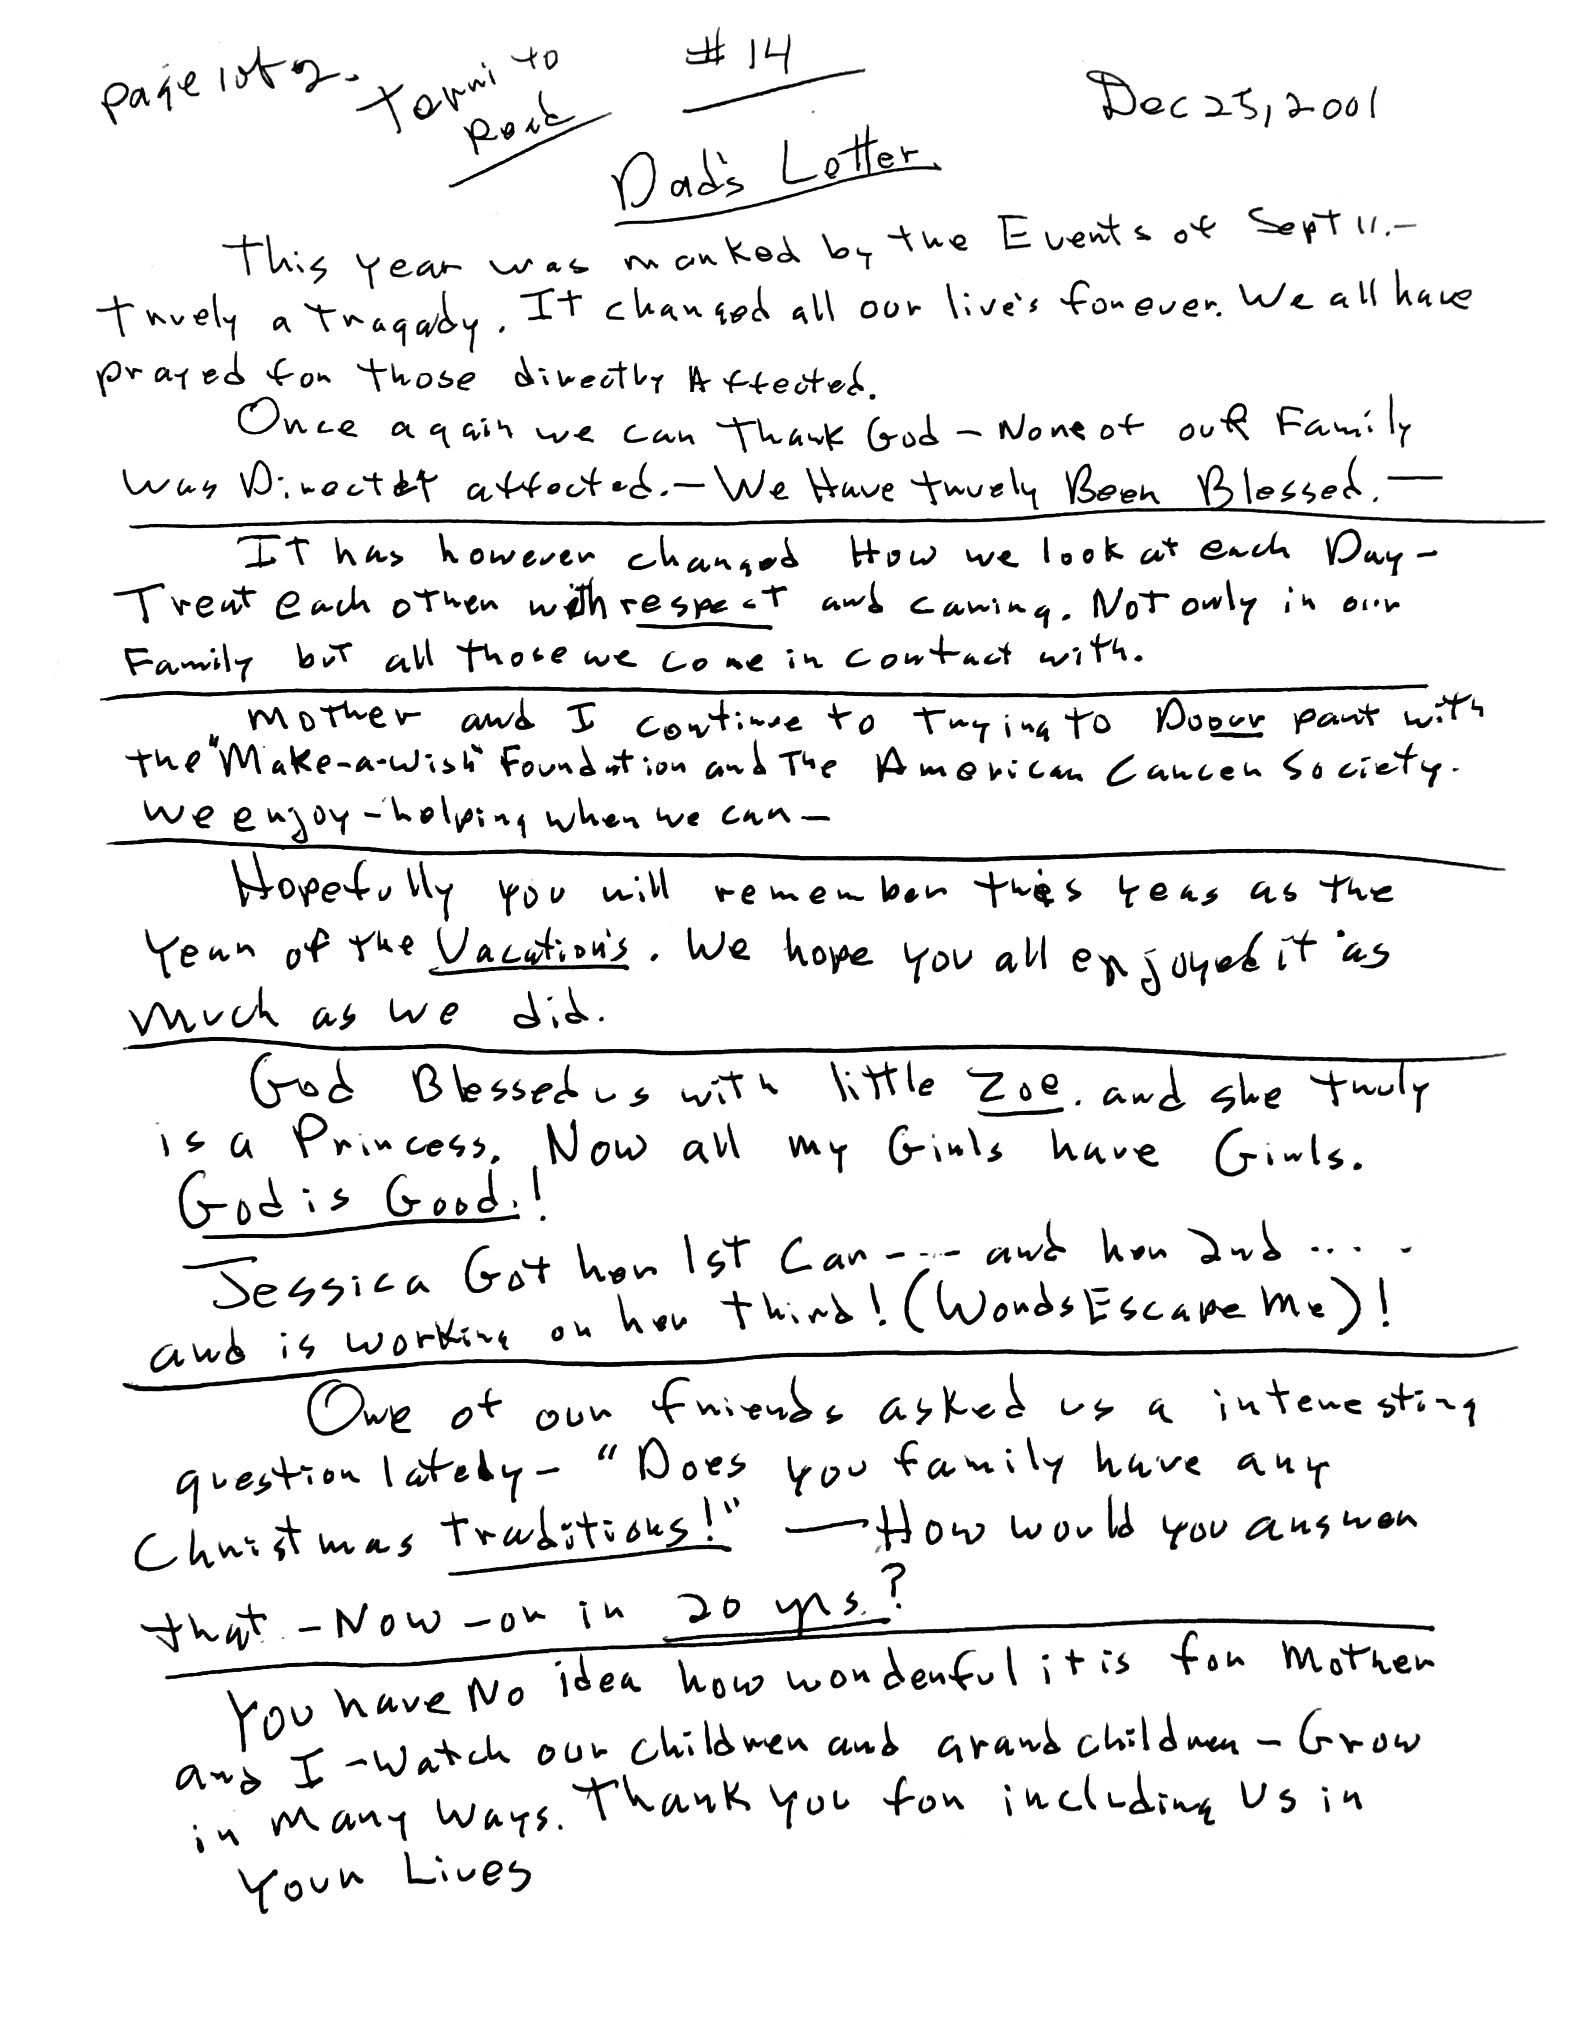 Page 1 of 2.
Terri to
Read
# 14
Dec 25, 2001
Dad's Letter.
This year was marked by the Events of Sept 11.-
truely a tragady. It changed all our live's forever. We all have
prayed for those directly Affected.
Once again we can Thank God - None of our Family
was Directly affected. - We Have truely Been Blessed. -
It has however changed How we look at each Day -
Treat each other with respect and caring. Not only in our
Family but all those we come in contact with.
Mother and I continue to trying to Do our part with
the "Make-a-Wish" Foundation and The American Cancer Society.
We enjoy - helping when we can -
Hopefully you will remember this year as the
Year of the Vacation's. We hope you all enjoyed it as
much as we did.
God Blessed us with little Zoe. and she truly
is a Princess. Now all my Girls have Girls.
God is Good.!
Jessica Got her 1st Car - - - - - and her 2nd .... -
and is working on her third! (Words Escape Me)!
One of our friends asked us a interesting
question lately - "Does you family have any
Christmas traditions!" - How would you answer
that - Now - or in 20 yrs.?
You have No idea how wonderful it is for Mother
and I - Watch our children and grandchildren - Grow
in Many Ways. Thank you for including Us in
Your Lives